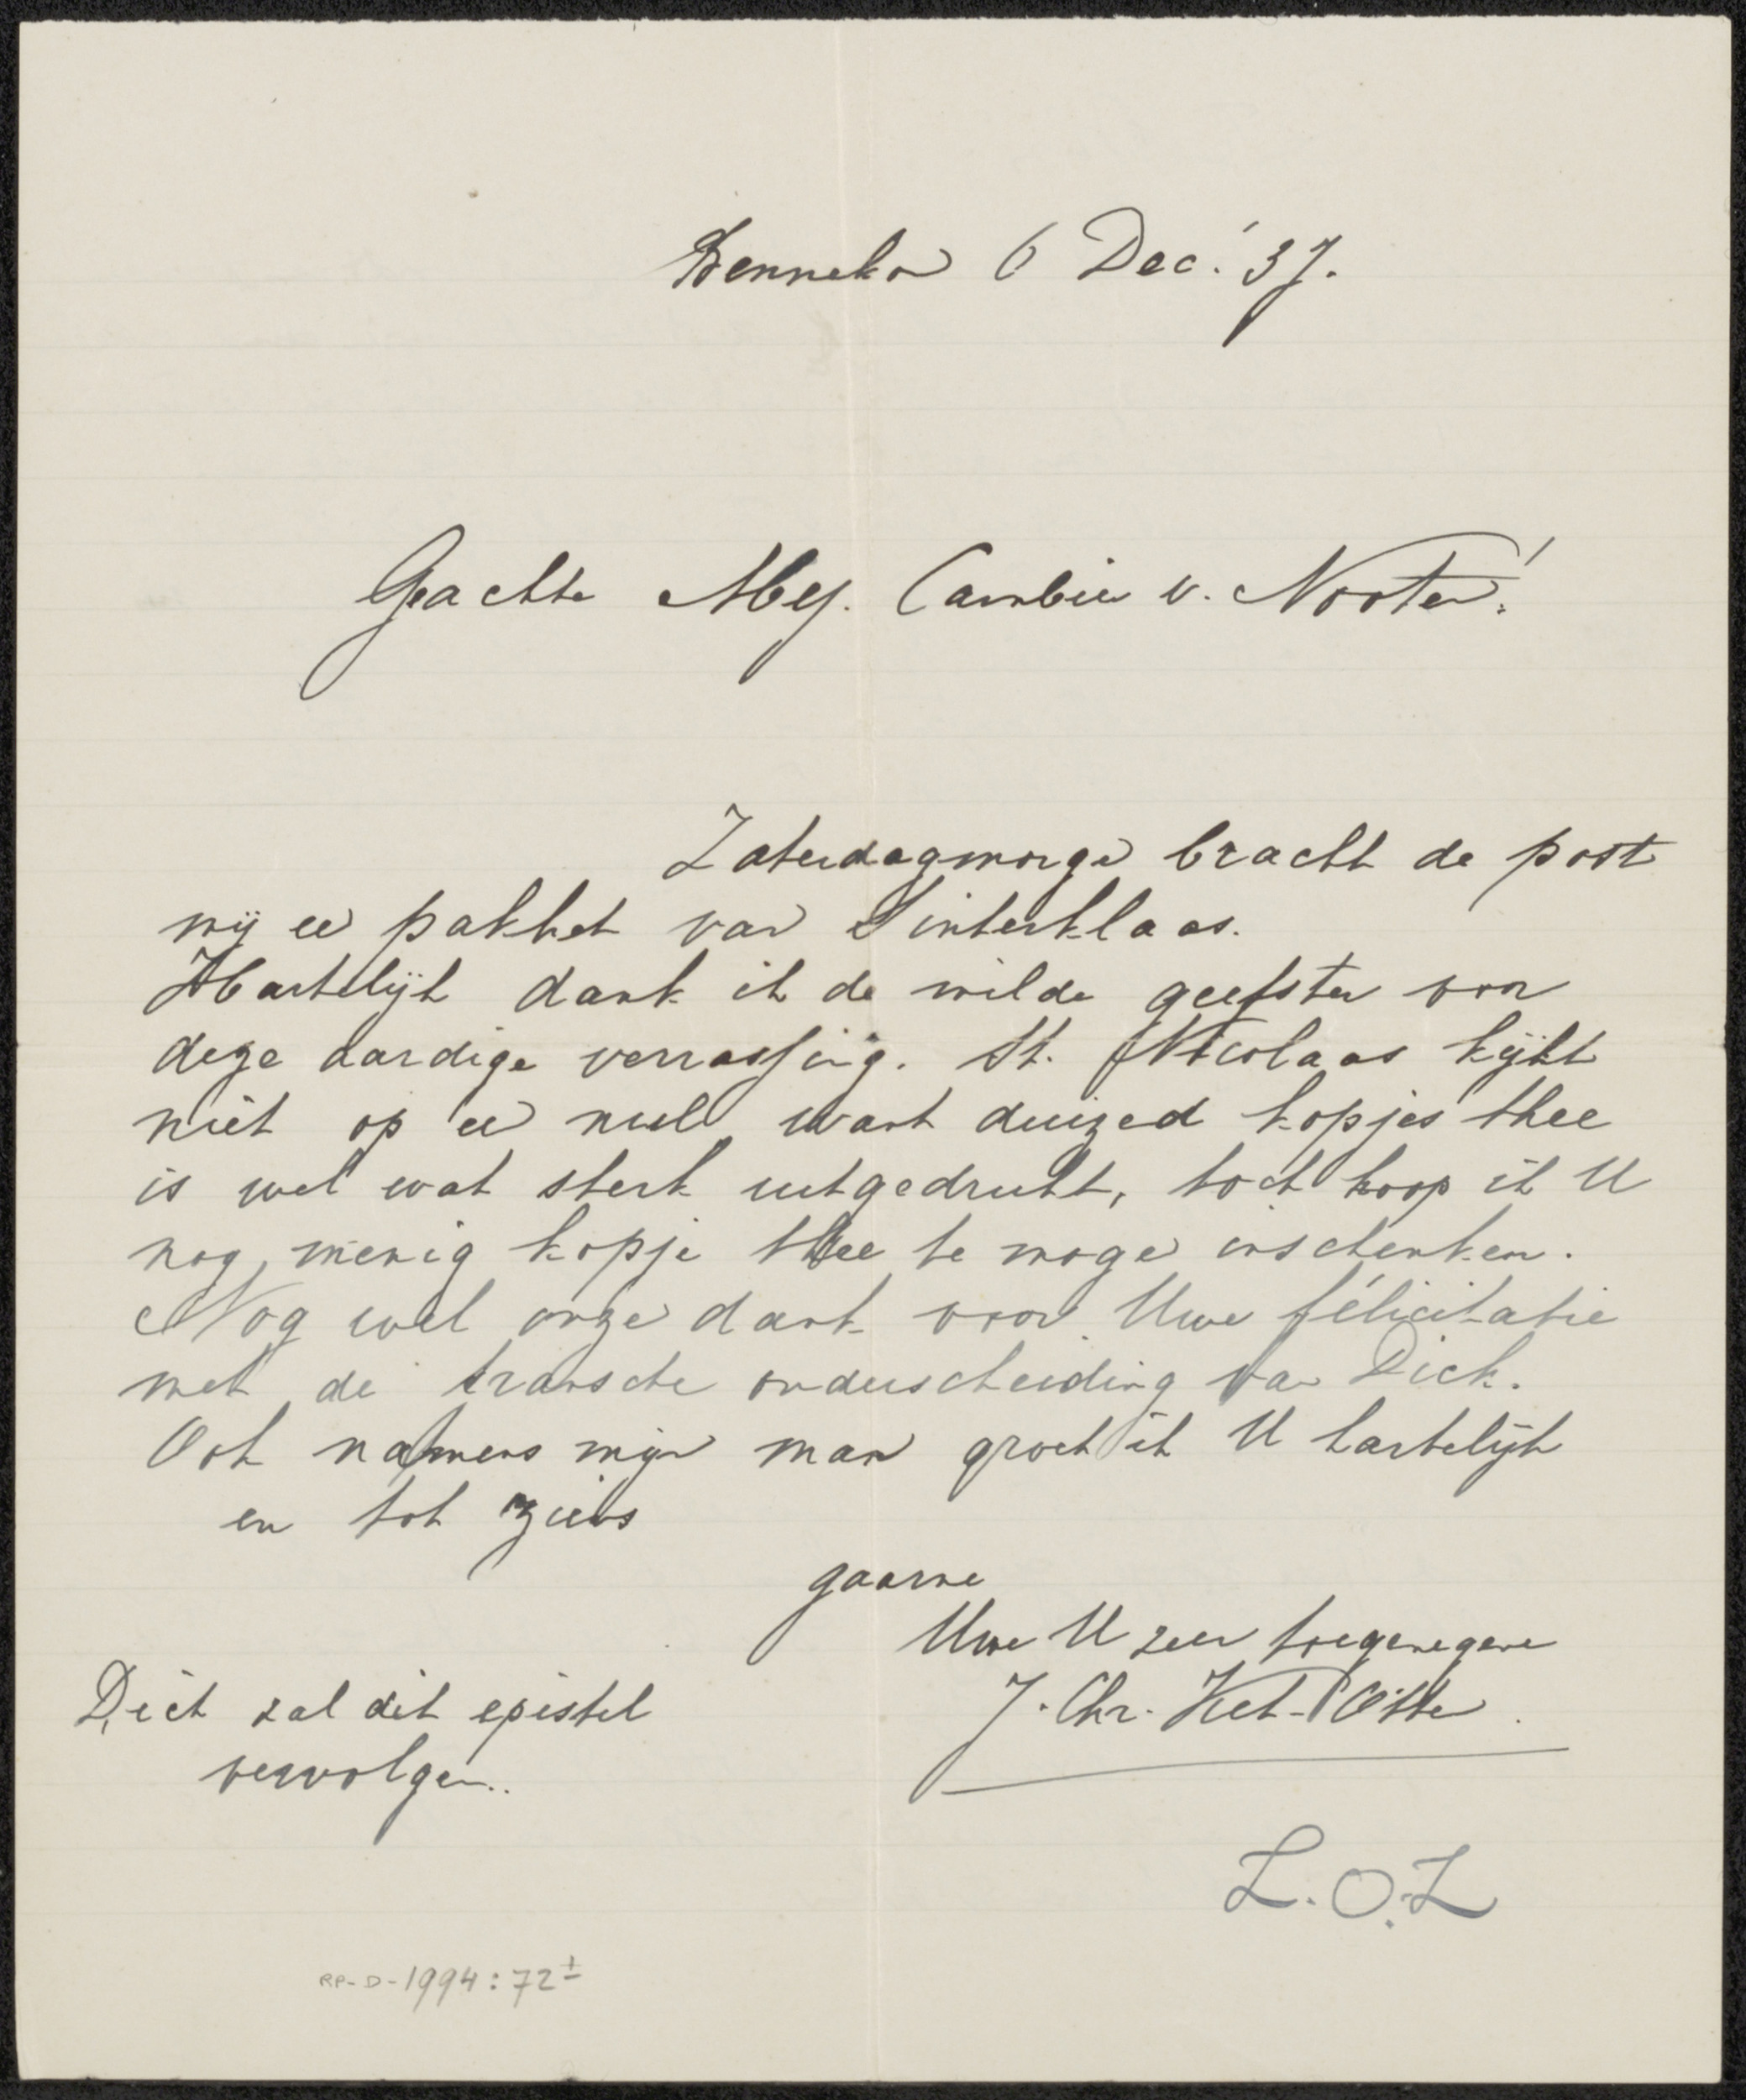 Bennekom 6 Dec. '37.
Geachte Mej. Cambier v. Nooten!
Zaterdagmorgen bracht de post
mij een pakket van Sinterklaas.
Hartelijk dank ik de milde geefster voor
deze aardige verrassing. St. Nicolaas kijkt
niet op een nul want duizend kopjes thee
is wel wat sterk uitgedrukt, toch hoop ik U
nog menig kopje thee te mogen inschenken.
Nog wel onze dank voor Uwe félicitatie
met de fransche onderscheiding van Dick.
Ook namens mijn man groet ik U hartelijk
en tot ziens
gaarne
Uwe U zeer toegenegene
J. Chr. Ket-Otte.
Dick zal dit epistel
vervolgen..
Z.O.Z
RP-D-1994:72±